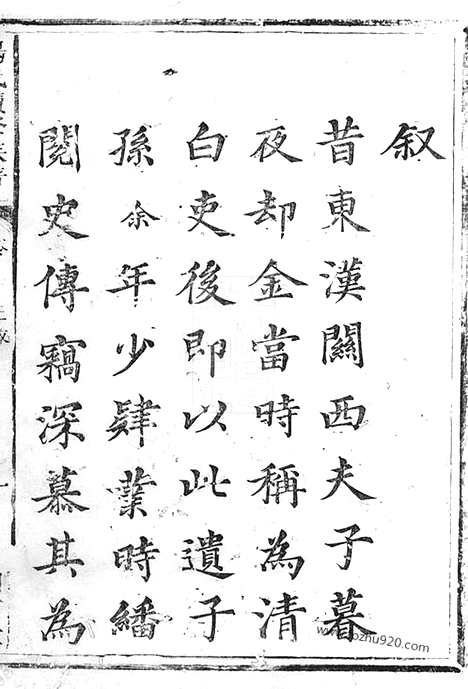 叙
昔東漢關西夫子暮
夜却金當時稱為清
白吏後即以此遺子
孫余年少肄業時繙
閱史傳竊深慕其為
zuozhu920.com